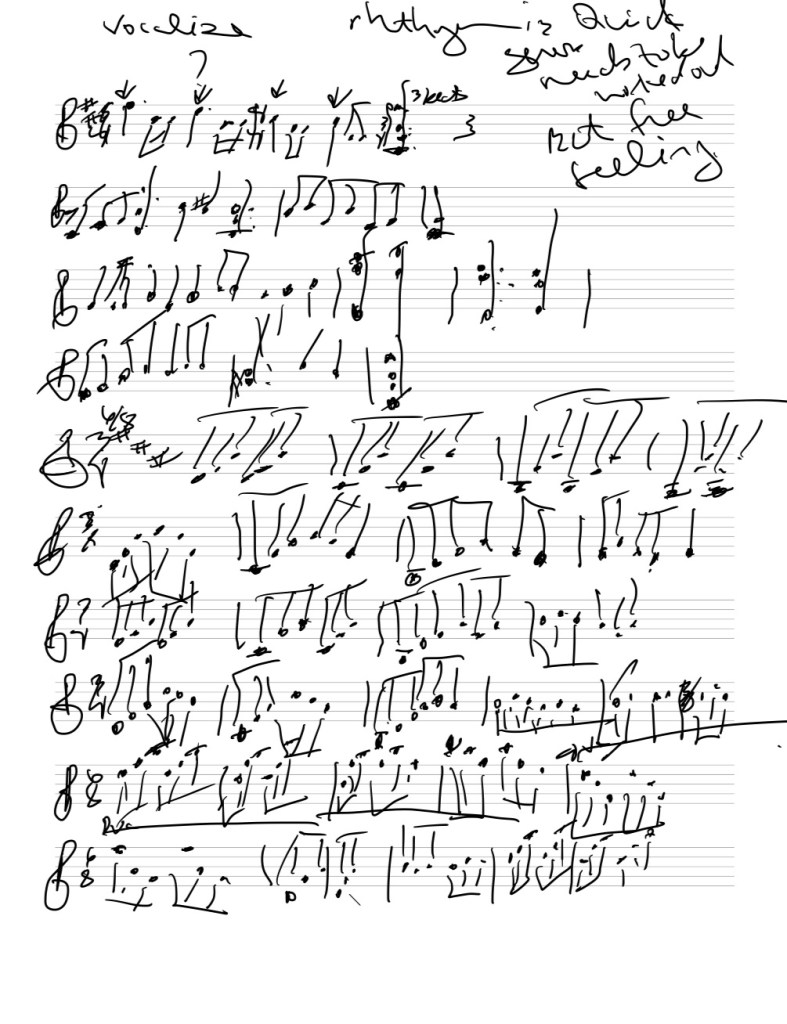 vocalize
?
rhthym is Quick
needs to be
worked out
3 beats
But free
feeling
6/8